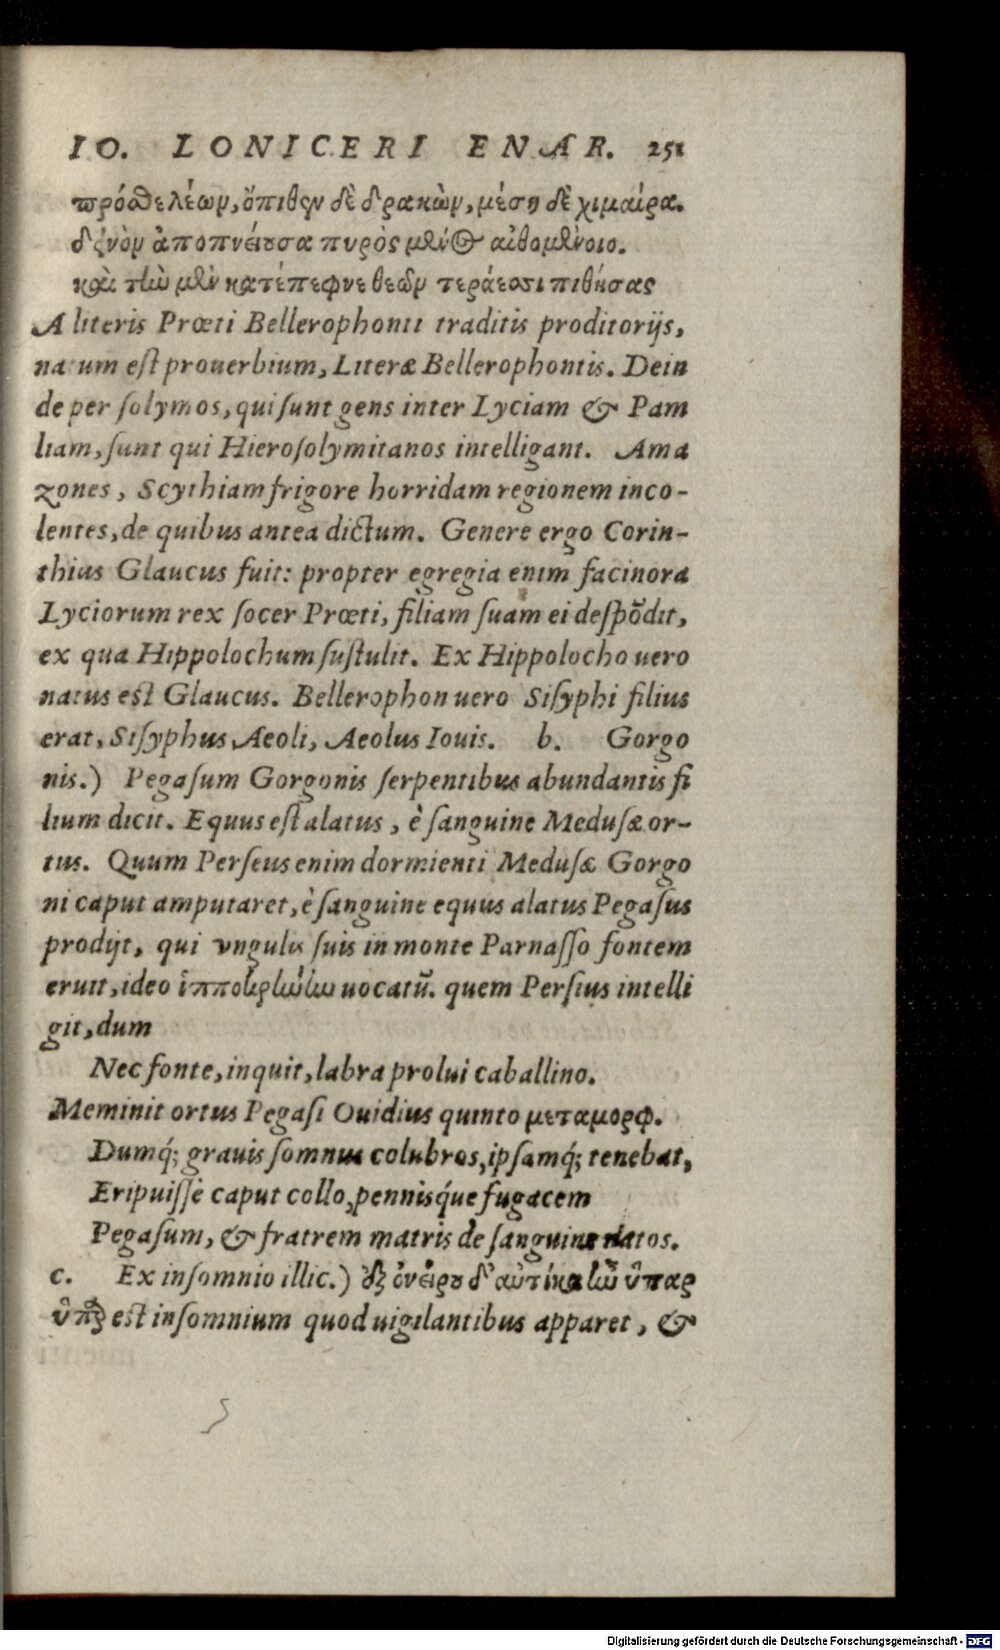 IO. LONICERI ENAR. 251
πρόσθε λέων, ὄπιθεν δὲ δρακὼν, μέση δὲ χιμαίρα.
δεινὸν ἀποπνείουσα πυρὸς μένος αἰθομένοιο.
καὶ τὴν μὲν κατέπεφνε θεῶν τεράεσσι πιθήσας
A literis Prœti Bellerophonti traditis proditorijs,
natum eſt prouerbium, Literæ Bellerophontis. Dein
de per ſolymos, qui ſunt gens inter Lyciam & Pam
liam, ſunt qui Hieroſolymitanos intelligant. Ama
zones, Scythiam frigore horridam regionem inco-
lentes, de quibus antea dictum. Genere ergo Corin-
thius Glaucus fuit: propter egregia enim facinora
Lyciorum rex ſocer Prœti, filiam ſuam ei deſpōdit,
ex qua Hippolochum ſuſtulit. Ex Hippolocho uero
natus eſt Glaucus. Bellerophon uero Siſyphi filius
erat, Siſyphus Aeoli, Aeolus Iouis. b. Gorgo
nis.) Pegaſum Gorgonis ſerpentibus abundantis fi
lium dicit. Equus eſt alatus, è ſanguine Meduſæ or-
tus. Quum Perſeus enim dormienti Meduſæ Gorgo
ni caput amputaret, è ſanguine equus alatus Pegaſus
prodijt, qui vngulis ſuis in monte Parnaſſo fontem
eruit, ideo ἱπποκρήνην uocatū. quem Perſius intelli
git, dum
Nec fonte, inquit, labra prolui caballino.
Meminit ortus Pegaſi Ouidius quinto μεταμορφ.
Dumq́; grauis ſomnus colubros, ipſamq́; tenebat,
Eripuiſſe caput collo, pennisq́ue fugacem
Pegaſum, & fratrem matris de ſanguine natos.
c. Ex inſomnio illic.) ἐξ ὀνείρου δ' αὐτίκα ἦν ὕπαρ
ὕπαρ eſt inſomnium quod uigilantibus apparet, &
Digitalisierung gefördert durch die Deutsche Forschungsgemeinschaft - DFG